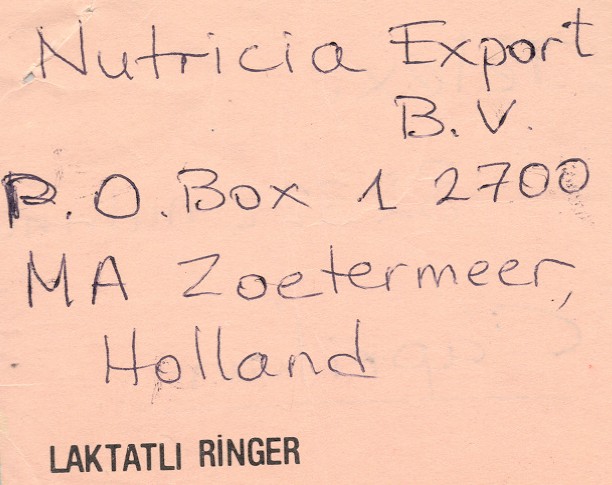 Nutricia Export
B.V.
P.O. Box 1 2700
MA Zoetermeer,
Holland
LAKTATLI RİNGER